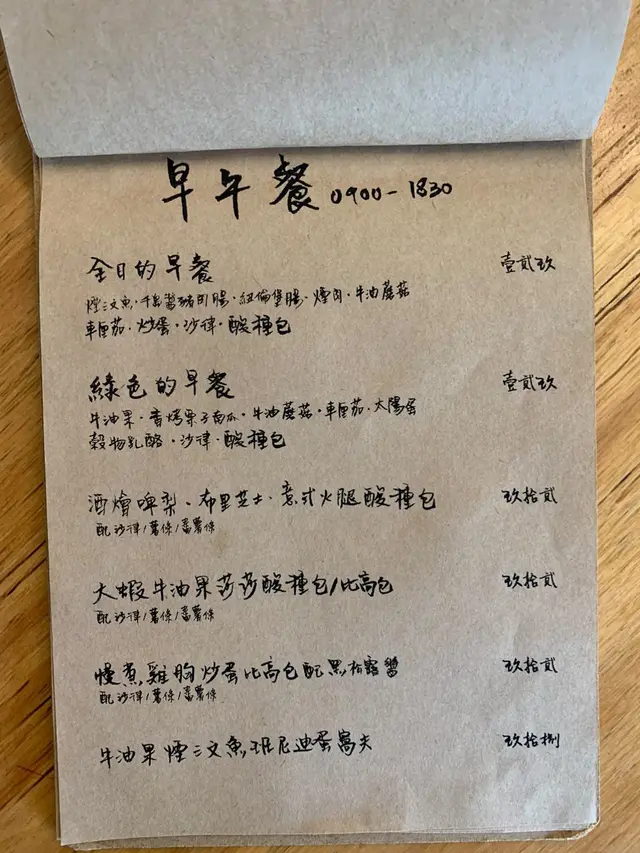 早午餐 0900-1830
全日的早餐 壹貳玖
煙三文魚·千島醬豬肉腸·紐倫堡腸·煙肉·牛油蘑菇
車厘茄·炒蛋·沙律·酸種包
綠色的早餐 壹貳玖
牛油果·香烤栗子南瓜·牛油蘑菇·車厘茄·太陽蛋
穀物乳酪·沙律·酸種包
酒燴啤梨·布里芝士·意式火腿酸種包 玖拾貳
配沙律/薯條/蕃薯條
大蝦牛油果莎莎酸種包/比高包 玖拾貳
配沙律/薯條/蕃薯條
慢煮雞胸炒蛋比高包配黑松露醬 玖拾貳
配沙律/薯條/蕃薯條
牛油果煙三文魚班尼迪蛋窩夫 玖拾捌